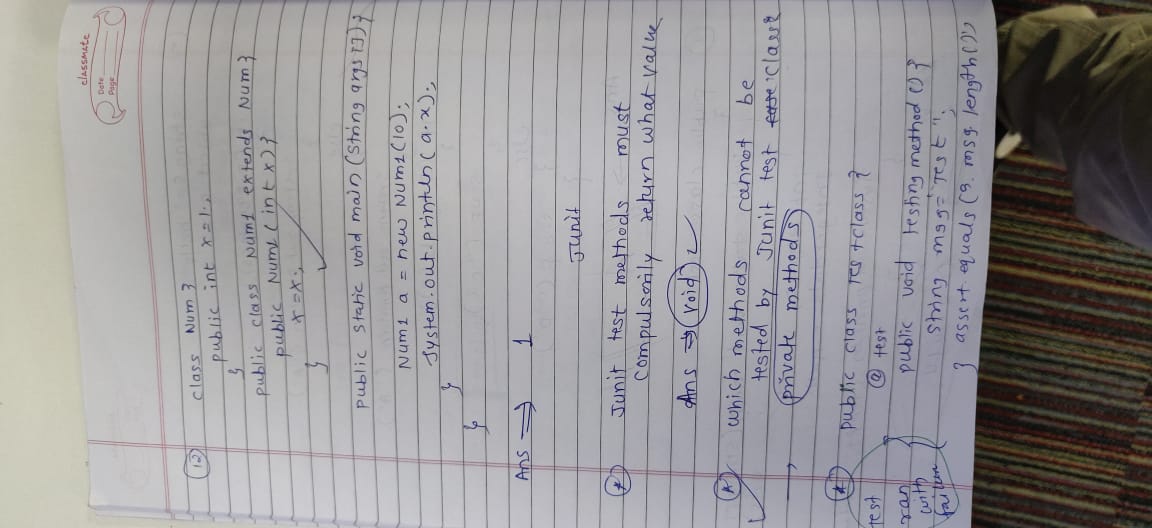 classmate
Date
Page
(12) class Num {
public int x = 1;
}
public class Num1 extends Num {
public Num1 (int x) {
x = x;
}
public static void main (String args []) {
Num1 a = new Num1 (10);
System.out.println (a.x);
}
}
Ans ⇒ 1
Junit
* Junit test methods must
compulsorily return what value
Ans ⇒ void
* which methods cannot be
tested by Junit test class
→ private methods
* public class Test class {
@ test
public void testing method () {
string msg = "Test";
assert equals (5. msg length());
}
test
ran
with
failure